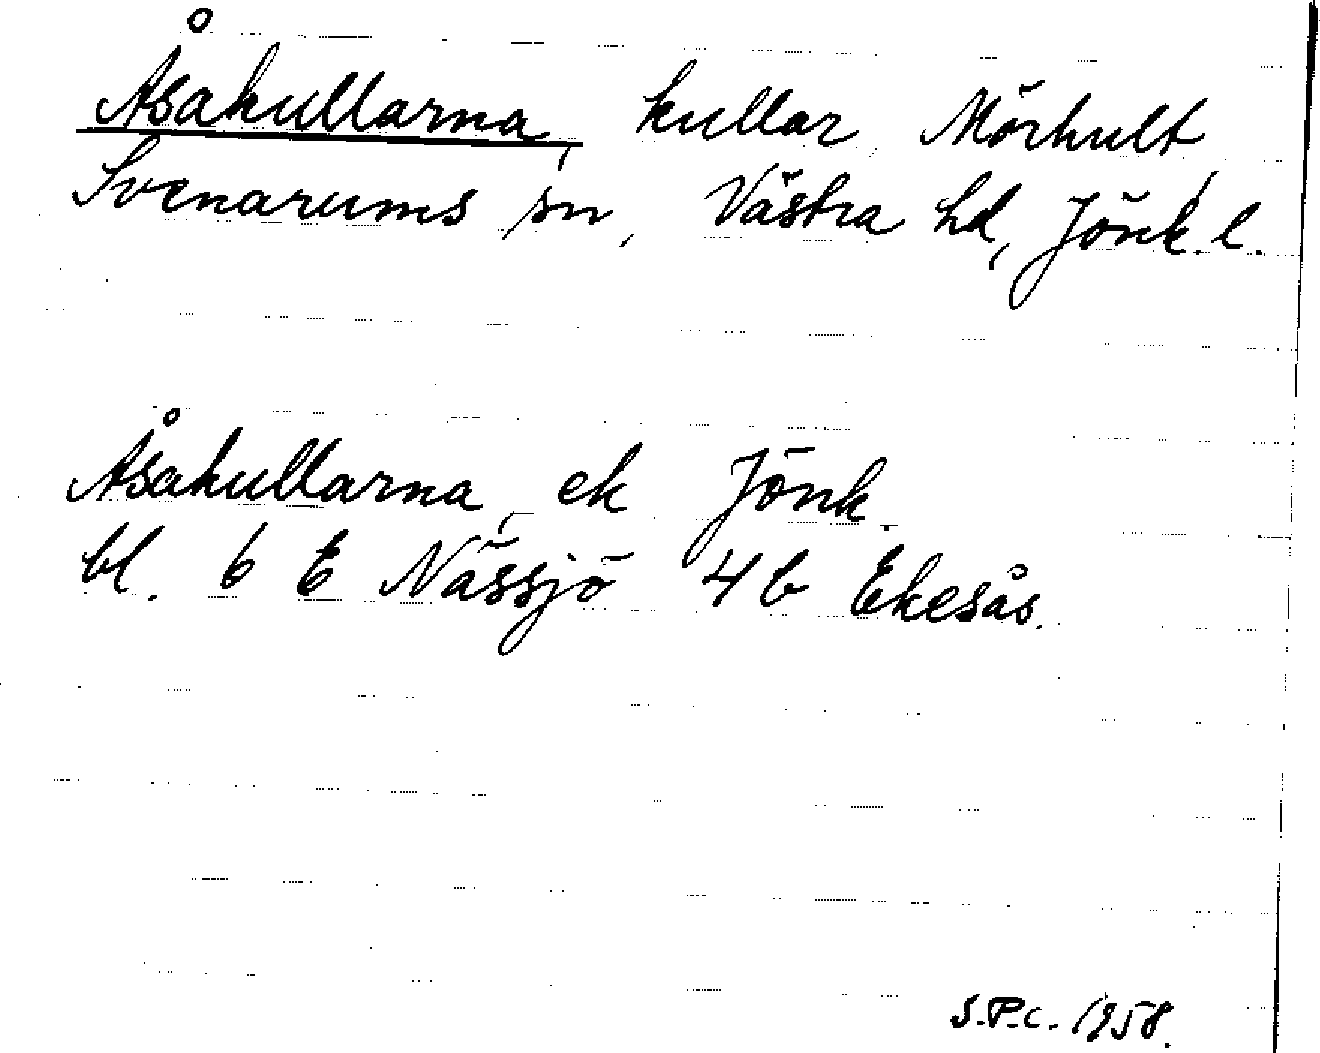 Åsakullarna, kullar, Mörhult,
Svenarums sn, Västra hd, Jönk. l.
Åsakullarna, ek Jönk.
bl. 6 E Nässjö 4 b Ekesås.
S.P.C. 1958.